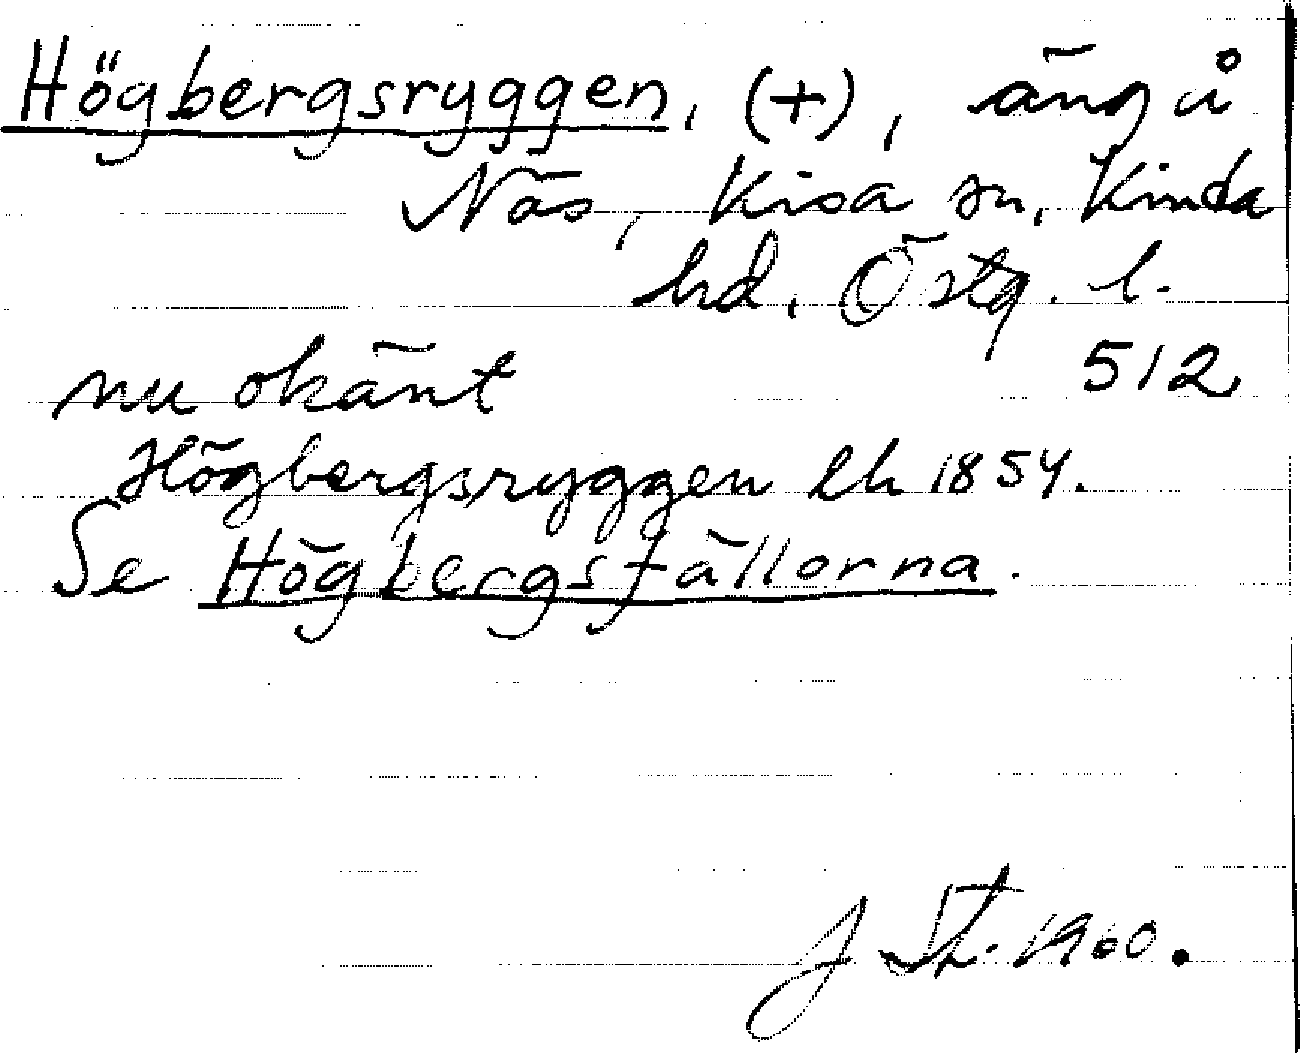 Högbergsryggen, (+), äng å
Näs, Kisa sn, Kinda
hd, Östg. l.
nu okänt 512
Högbergsryggen lh 1854.
Se Högbergsfällorna.
J St. 1960.